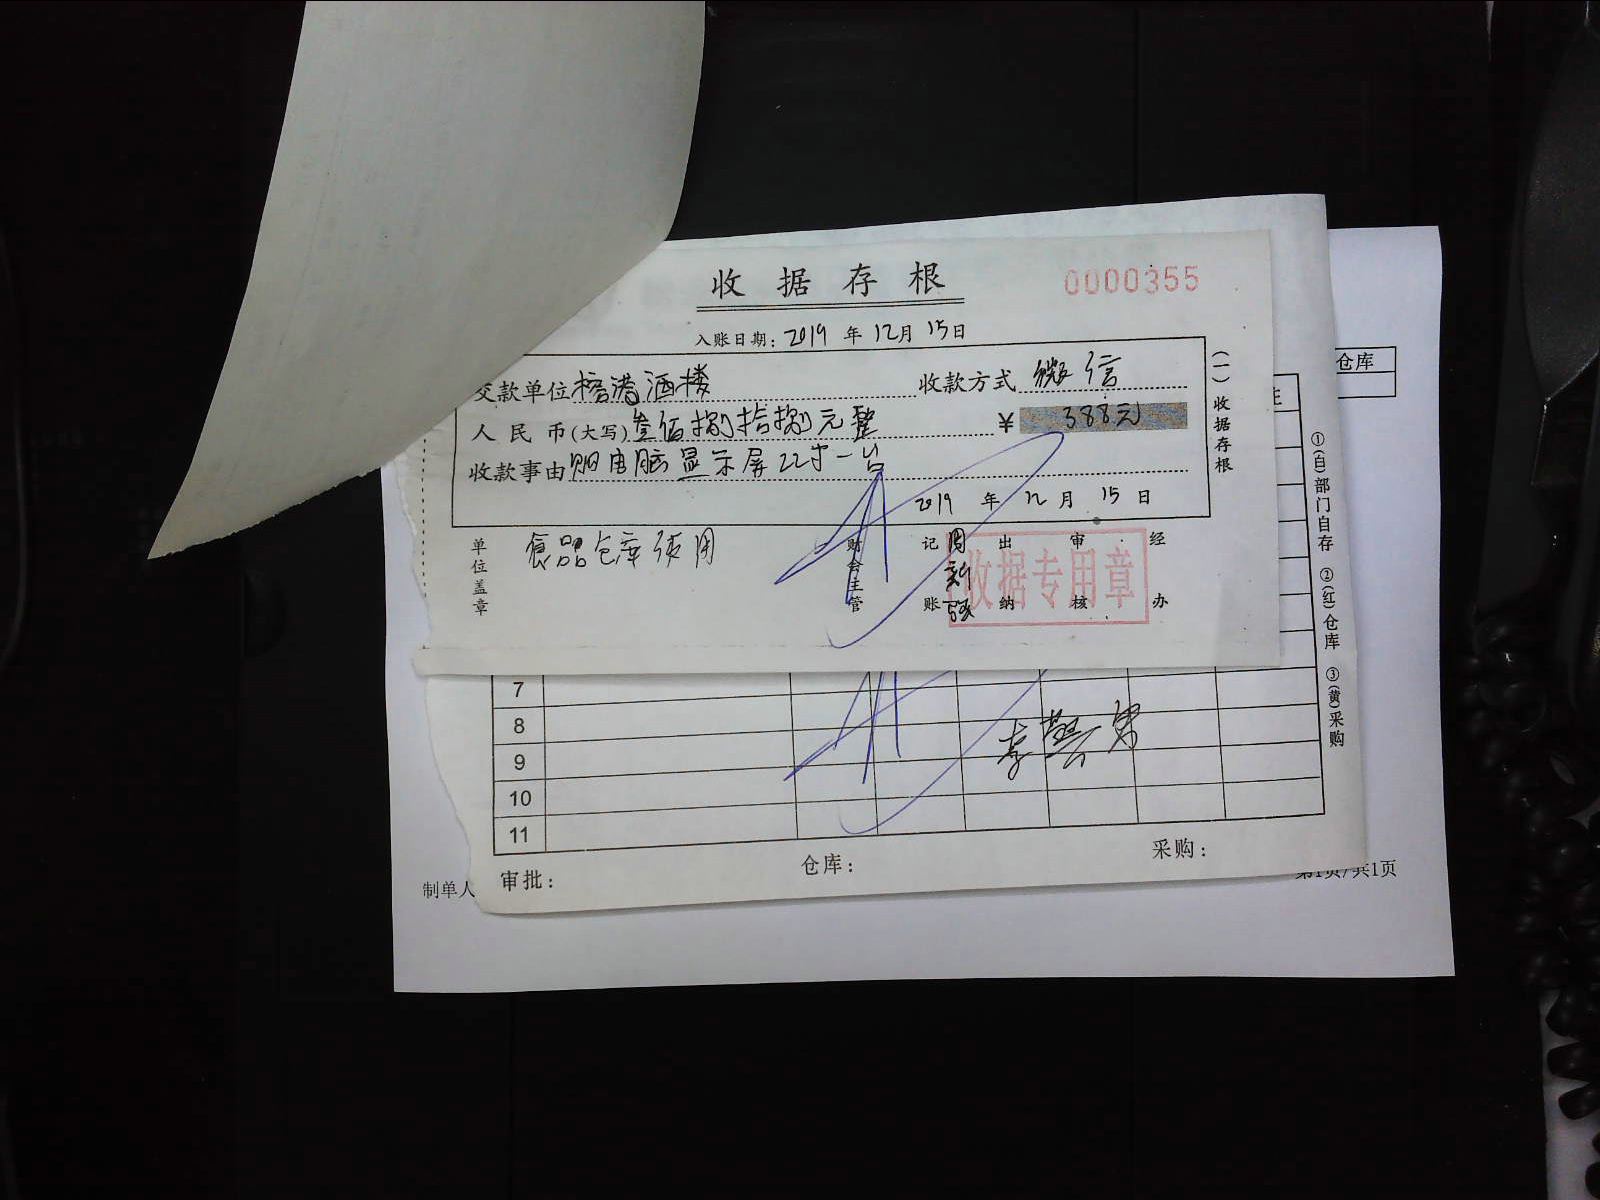 收据存根
0000355
入账日期：2019年12月15日
交款单位 榕港酒楼 收款方式 微信
人民币(大写) 叁佰捌拾捌元整 ¥ 388元
收款事由 购电脑显示屏22寸一台
2019年12月15日
(一)收据存根
单位盖章 食品仓库使用 财会主管 记账 出纳 审核 经办
收据专用章
仓库
①(白)部门自存 ②(红)仓库 ③(黄)采购
7
8
9
10
11
审批： 仓库： 采购：
制单人
第1页/共1页